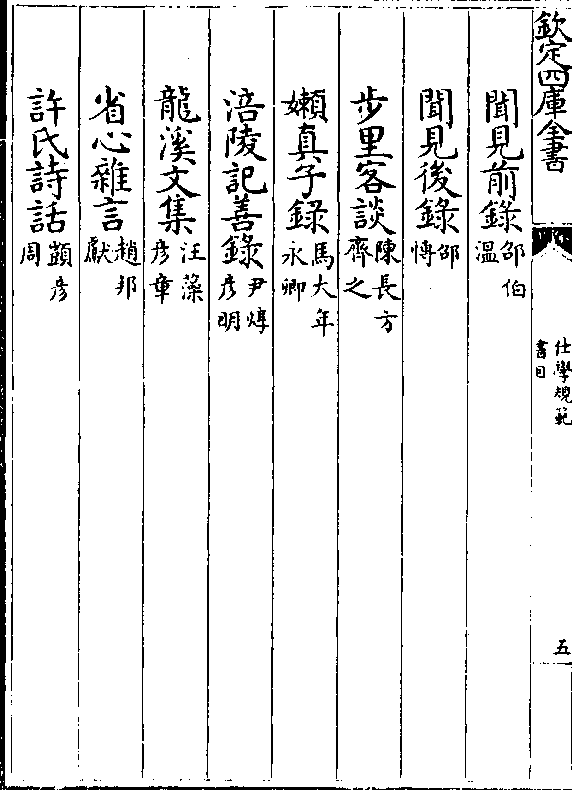 欽定四庫全書
仕學規範
書目
五
聞見前錄邵伯溫
聞見後錄邵慱
步里客談陳長方齊之
嬾真子録馬大年永卿
涪陵記善錄尹焞彥明
龍溪文集汪藻彥章
省心雜言趙邦獻
許氏詩話顗彥周